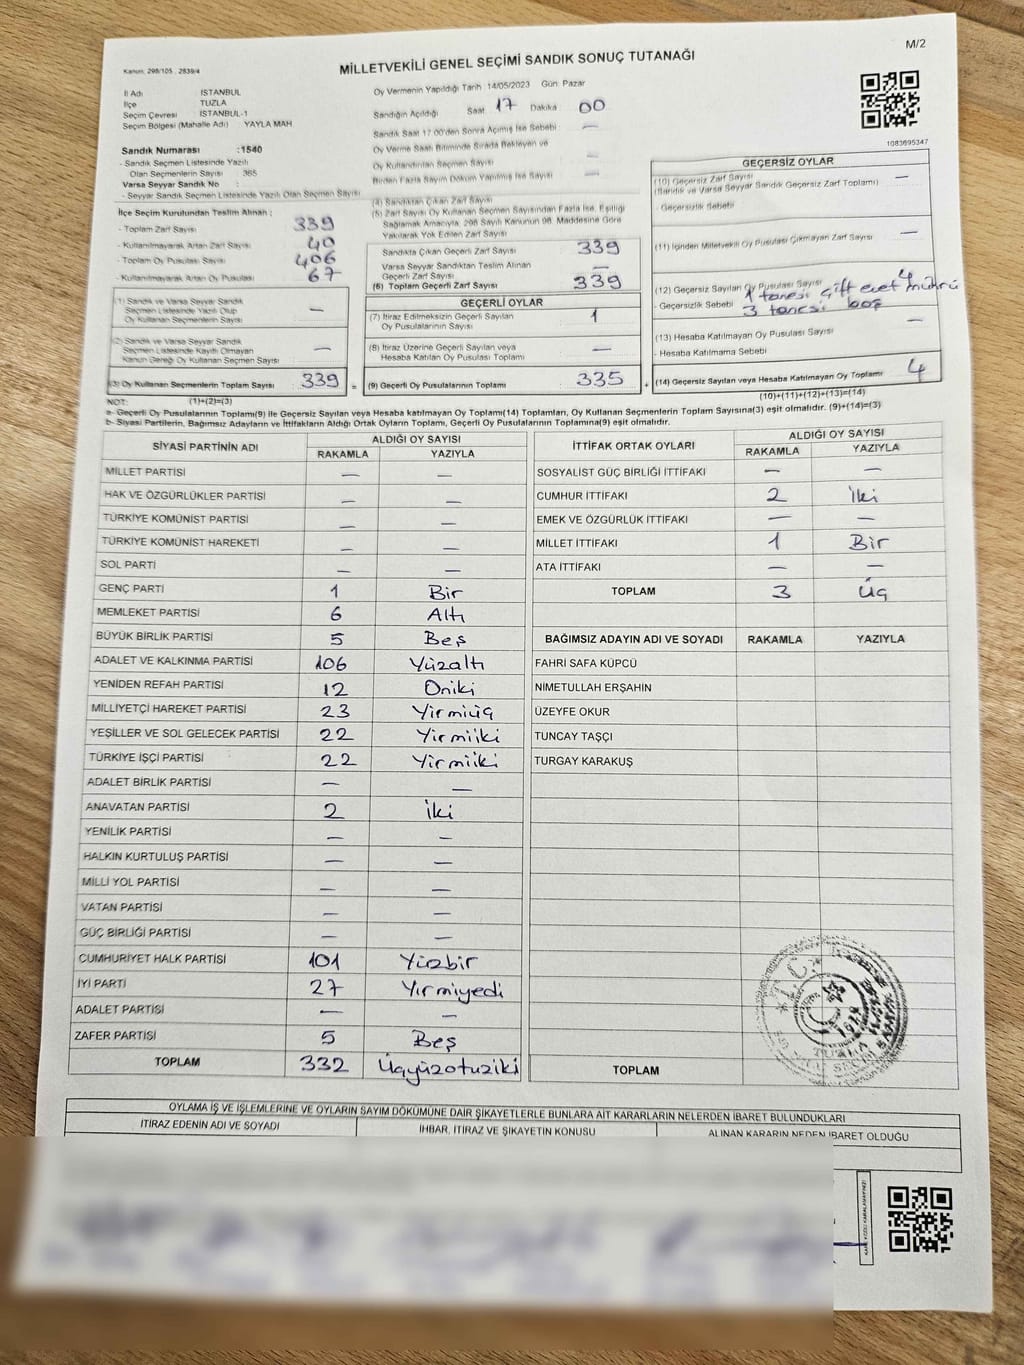 M/2
Kanun: 298/105 , 2839/4
MİLLETVEKİLİ GENEL SEÇİMİ SANDIK SONUÇ TUTANAĞI
İl Adı İSTANBUL
İlçe TUZLA
Seçim Çevresi İSTANBUL-1
Seçim Bölgesi (Mahalle Adı) YAYLA MAH
Oy Vermenin Yapıldığı Tarih 14/05/2023 Gün: Pazar
Sandığın Açıldığı Saat 17 Dakika 00
Sandık Saat 17:00'den Sonra Açılmış İse Sebebi —
Oy Verme Saati Bitiminde Sırada Bekleyen ve
Oy Kullandırılan Seçmen Sayısı —
Birden Fazla Sayım Döküm Yapılmış İse Sayısı —
1083695347
Sandık Numarası :1540
- Sandık Seçmen Listesinde Yazılı
Olan Seçmenlerin Sayısı : 365
Varsa Seyyar Sandık No :
- Seyyar Sandık Seçmen Listesinde Yazılı Olan Seçmen Sayısı
İlçe Seçim Kurulundan Teslim Alınan ;
- Toplam Zarf Sayısı 339
- Kullanılmayarak Artan Zarf Sayısı 40
- Toplam Oy Pusulası Sayısı 406
- Kullanılmayarak Artan Oy Pusulası 67
(1) Sandık ve Varsa Seyyar Sandık
Seçmen Listesinde Yazılı Olup
Oy Kullanan Seçmenlerin Sayısı —
(2) Sandık ve Varsa Seyyar Sandık
Seçmen Listesinde Kayıtlı Olmayan
Kanun Gereği Oy Kullanan Seçmen Sayısı —
(3) Oy Kullanan Seçmenlerin Toplam Sayısı 339 =
(1)+(2)=(3)
(4) Sandıktan Çıkan Zarf Sayısı
(5) Zarf Sayısı Oy Kullanan Seçmen Sayısından Fazla İse, Eşitliği
Sağlamak Amacıyla, 298 Sayılı Kanunun 98. Maddesine Göre
Yakılarak Yok Edilen Zarf Sayısı
Sandıkta Çıkan Geçerli Zarf Sayısı 339
Varsa Seyyar Sandıktan Teslim Alınan
Geçerli Zarf Sayısı —
(6) Toplam Geçerli Zarf Sayısı 339
GEÇERLİ OYLAR
(7) İtiraz Edilmeksizin Geçerli Sayılan
Oy Pusulalarının Sayısı 1
(8) İtiraz Üzerine Geçerli Sayılan veya
Hesaba Katılan Oy Pusulası Toplamı —
(9) Geçerli Oy Pusulalarının Toplamı 335 +
GEÇERSİZ OYLAR
(10) Geçersiz Zarf Sayısı —
(Sandık ve Varsa Seyyar Sandık Geçersiz Zarf Toplamı)
- Geçersizlik Sebebi
(11) İçinden Milletvekili Oy Pusulası Çıkmayan Zarf Sayısı —
(12) Geçersiz Sayılan Oy Pusulası Sayısı 4
- Geçersizlik Sebebi 1 tanesi çift evet mührü
3 tanesi boş
(13) Hesaba Katılmayan Oy Pusulası Sayısı —
- Hesaba Katılmama Sebebi
(14) Geçersiz Sayılan veya Hesaba Katılmayan Oy Toplamı 4
(10)+(11)+(12)+(13)=(14)
NOT:
a- Geçerli Oy Pusulalarının Toplamı(9) ile Geçersiz Sayılan veya Hesaba katılmayan Oy Toplamı(14) Toplamları, Oy Kullanan Seçmenlerin Toplam Sayısına(3) eşit olmalıdır. (9)+(14)=(3)
b- Siyasi Partilerin, Bağımsız Adayların ve İttifakların Aldığı Ortak Oyların Toplamı, Geçerli Oy Pusulalarının Toplamına(9) eşit olmalıdır.
SİYASİ PARTİNİN ADI ALDIĞI OY SAYISI
RAKAMLA YAZIYLA
MİLLET PARTİSİ — —
HAK VE ÖZGÜRLÜKLER PARTİSİ — —
TÜRKİYE KOMÜNİST PARTİSİ — —
TÜRKİYE KOMÜNİST HAREKETİ — —
SOL PARTİ — —
GENÇ PARTİ 1 Bir
MEMLEKET PARTİSİ 6 Altı
BÜYÜK BİRLİK PARTİSİ 5 Beş
ADALET VE KALKINMA PARTİSİ 106 Yüzaltı
YENİDEN REFAH PARTİSİ 12 Oniki
MİLLİYETÇİ HAREKET PARTİSİ 23 Yirmiüç
YEŞİLLER VE SOL GELECEK PARTİSİ 22 Yirmiiki
TÜRKİYE İŞÇİ PARTİSİ 22 Yirmiiki
ADALET BİRLİK PARTİSİ — —
ANAVATAN PARTİSİ 2 İki
YENİLİK PARTİSİ — —
HALKIN KURTULUŞ PARTİSİ — —
MİLLİ YOL PARTİSİ — —
VATAN PARTİSİ — —
GÜÇ BİRLİĞİ PARTİSİ — —
CUMHURİYET HALK PARTİSİ 101 Yüzbir
İYİ PARTİ 27 Yirmiyedi
ADALET PARTİSİ — —
ZAFER PARTİSİ 5 Beş
TOPLAM 332 Üçyüzotuziki
İTTİFAK ORTAK OYLARI ALDIĞI OY SAYISI
RAKAMLA YAZIYLA
SOSYALİST GÜÇ BİRLİĞİ İTTİFAKI — —
CUMHUR İTTİFAKI 2 İki
EMEK VE ÖZGÜRLÜK İTTİFAKI — —
MİLLET İTTİFAKI 1 Bir
ATA İTTİFAKI — —
TOPLAM 3 Üç
BAĞIMSIZ ADAYIN ADI VE SOYADI RAKAMLA YAZIYLA
FAHRİ SAFA KÜPCÜ
NİMETULLAH ERŞAHİN
ÜZEYFE OKUR
TUNCAY TAŞÇI
TURGAY KARAKUŞ
TOPLAM
T.C.
TUZLA
OYLAMA İŞ VE İŞLEMLERİNE VE OYLARIN SAYIM DÖKÜMÜNE DAİR ŞİKAYETLERLE BUNLARA AİT KARARLARIN NELERDEN İBARET BULUNDUKLARI
İTİRAZ EDENİN ADI VE SOYADI İHBAR, İTİRAZ VE ŞİKAYETİN KONUSU ALINAN KARARIN NEDEN İBARET OLDUĞU